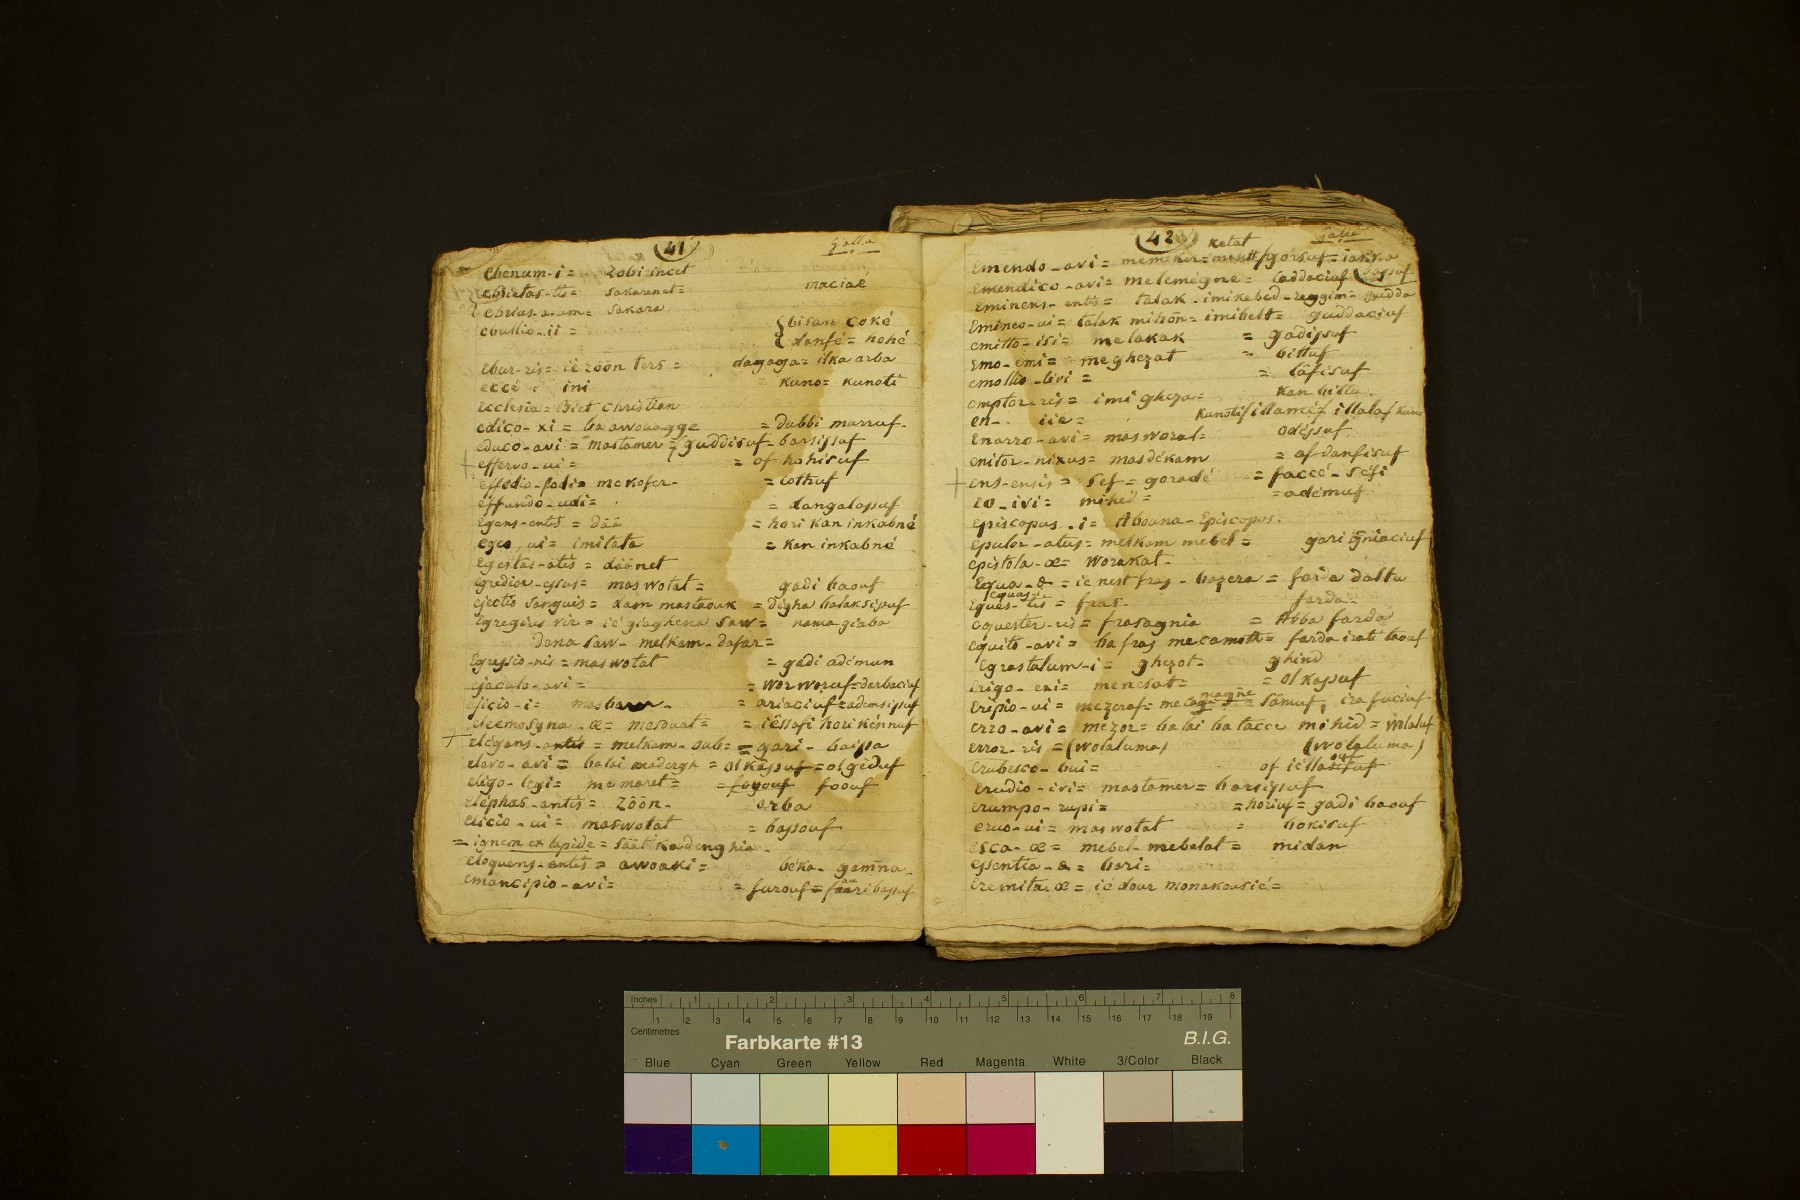 41
Galla
Ebenum-i = Zobi incet
ebrietas-tis = sakarenet = maciaé
ebrius-a-um = sakara
ebullio-ii = bisan coké
danfé = hohé
ebur-ris = ië zöön ters = dagaga = ilka arba
eccé ini kuno = kunoti
Ecclesia = Biet Christian
edico-xi = ba awouagge = dubbi murruf-
educo-avi = mastamer = guddisuf-barsissuf
effervo-ui = = of hohisuf
effodio-fodi = mekofer- = cothuf
effundo-udi = = dangalassuf
Egens-entis = dää = hori kan inkabné
egeo, ui = imitata = kan inkabné
Egestas-atis = däänet
Egredior-essus = maswotat = gadi baouf
ejectio sanguis = dam mastaouk = digha balaksissuf
Egregius vir = ié giaghena saw = nama giaba
Dana saw- melkam-dafar =
Egressio-nis = maswotat = gadi adémun
ejaculo-avi = = worworuf = darbaciuf
ejicio-i = = ariaciuf = ademsissuf
eleemosyna-æ = masduat = = iëssafi hori kénnuf
+ elégans-antis = melkam-sub = = gari-baissa
elevo-avi = balai madergh = olkassuf = olgéduf
eligo-legi = memaret = = foyouf foouf
elephas-antis = zöön- arba
elicio-ui = maswotat = bassouf
= ignem ex lapide = säät kadenghia-
eloquens-entis = awoaki = béka-gemna-
emancipio-avi = = furouf =
42
Galla
ketat
Emendo-avi = memeker = gorsuf = iakka
Emendico-avi = melemegne = caddaciuf bassuf
Eminens-entis = talak-imikebed-reggim = gudda
Emineo-ui = talak mihön = imibelt = guddaciuf
emitto-isi = melakak = gadissuf
Emo-emi = meghezat = bittuf
emollio-livi = = lâfisuf
emptor-ris = imigheza = kan bittu
en- iië = kunoti illamëf illalaf kuno
Enarro-avi = masworat = odéssuf
enitor-nixus = masdékam = of danfisuf
+ ens-ensis = séf = goradé = faccé-séfi
eo-ivi = mihed = = adémuf
Episcopus-i = Abouna-Episcopos.
epulor-atus = melkam mebel = gari gniaciuf
epistola-æ = worakat-
Equa-æ = ië nest fras-bazera = farda daltu
equus-i
Eques-tis = fras- farda-
equester-ris = frasagnia = Abba farda
equito-avi = ba fras mecamoth = farda irati taouf
Egrastalum-i = ghezot = ghind
Erigo-exi = mencsat = = olkassuf
magne
Eripio-ui = mezeraf = = sämuf, irafuciuf-
erro-avi = mezor = balai batacce mihid = wolaluf
error-ris = (wolaluma) (wolaluma)
erubesco-bui = of iëllasisuf
Erudio-ivi = mastamer = barsissuf
erumpo-rupi = = horiuf = gadi baouf
eruo-ui = maswotat = bokisuf
esca-æ = mebel-mebelat = midan
essentia-æ = bari =
Eremita-æ = ié dour monakousié =
Inches 1 2 3 4 5 6 7 8
1 2 3 4 5 6 7 8 9 10 11 12 13 14 15 16 17 18 19
Centimetres
Farbkarte #13 B.I.G.
Blue Cyan Green Yellow Red Magenta White 3/Color Black